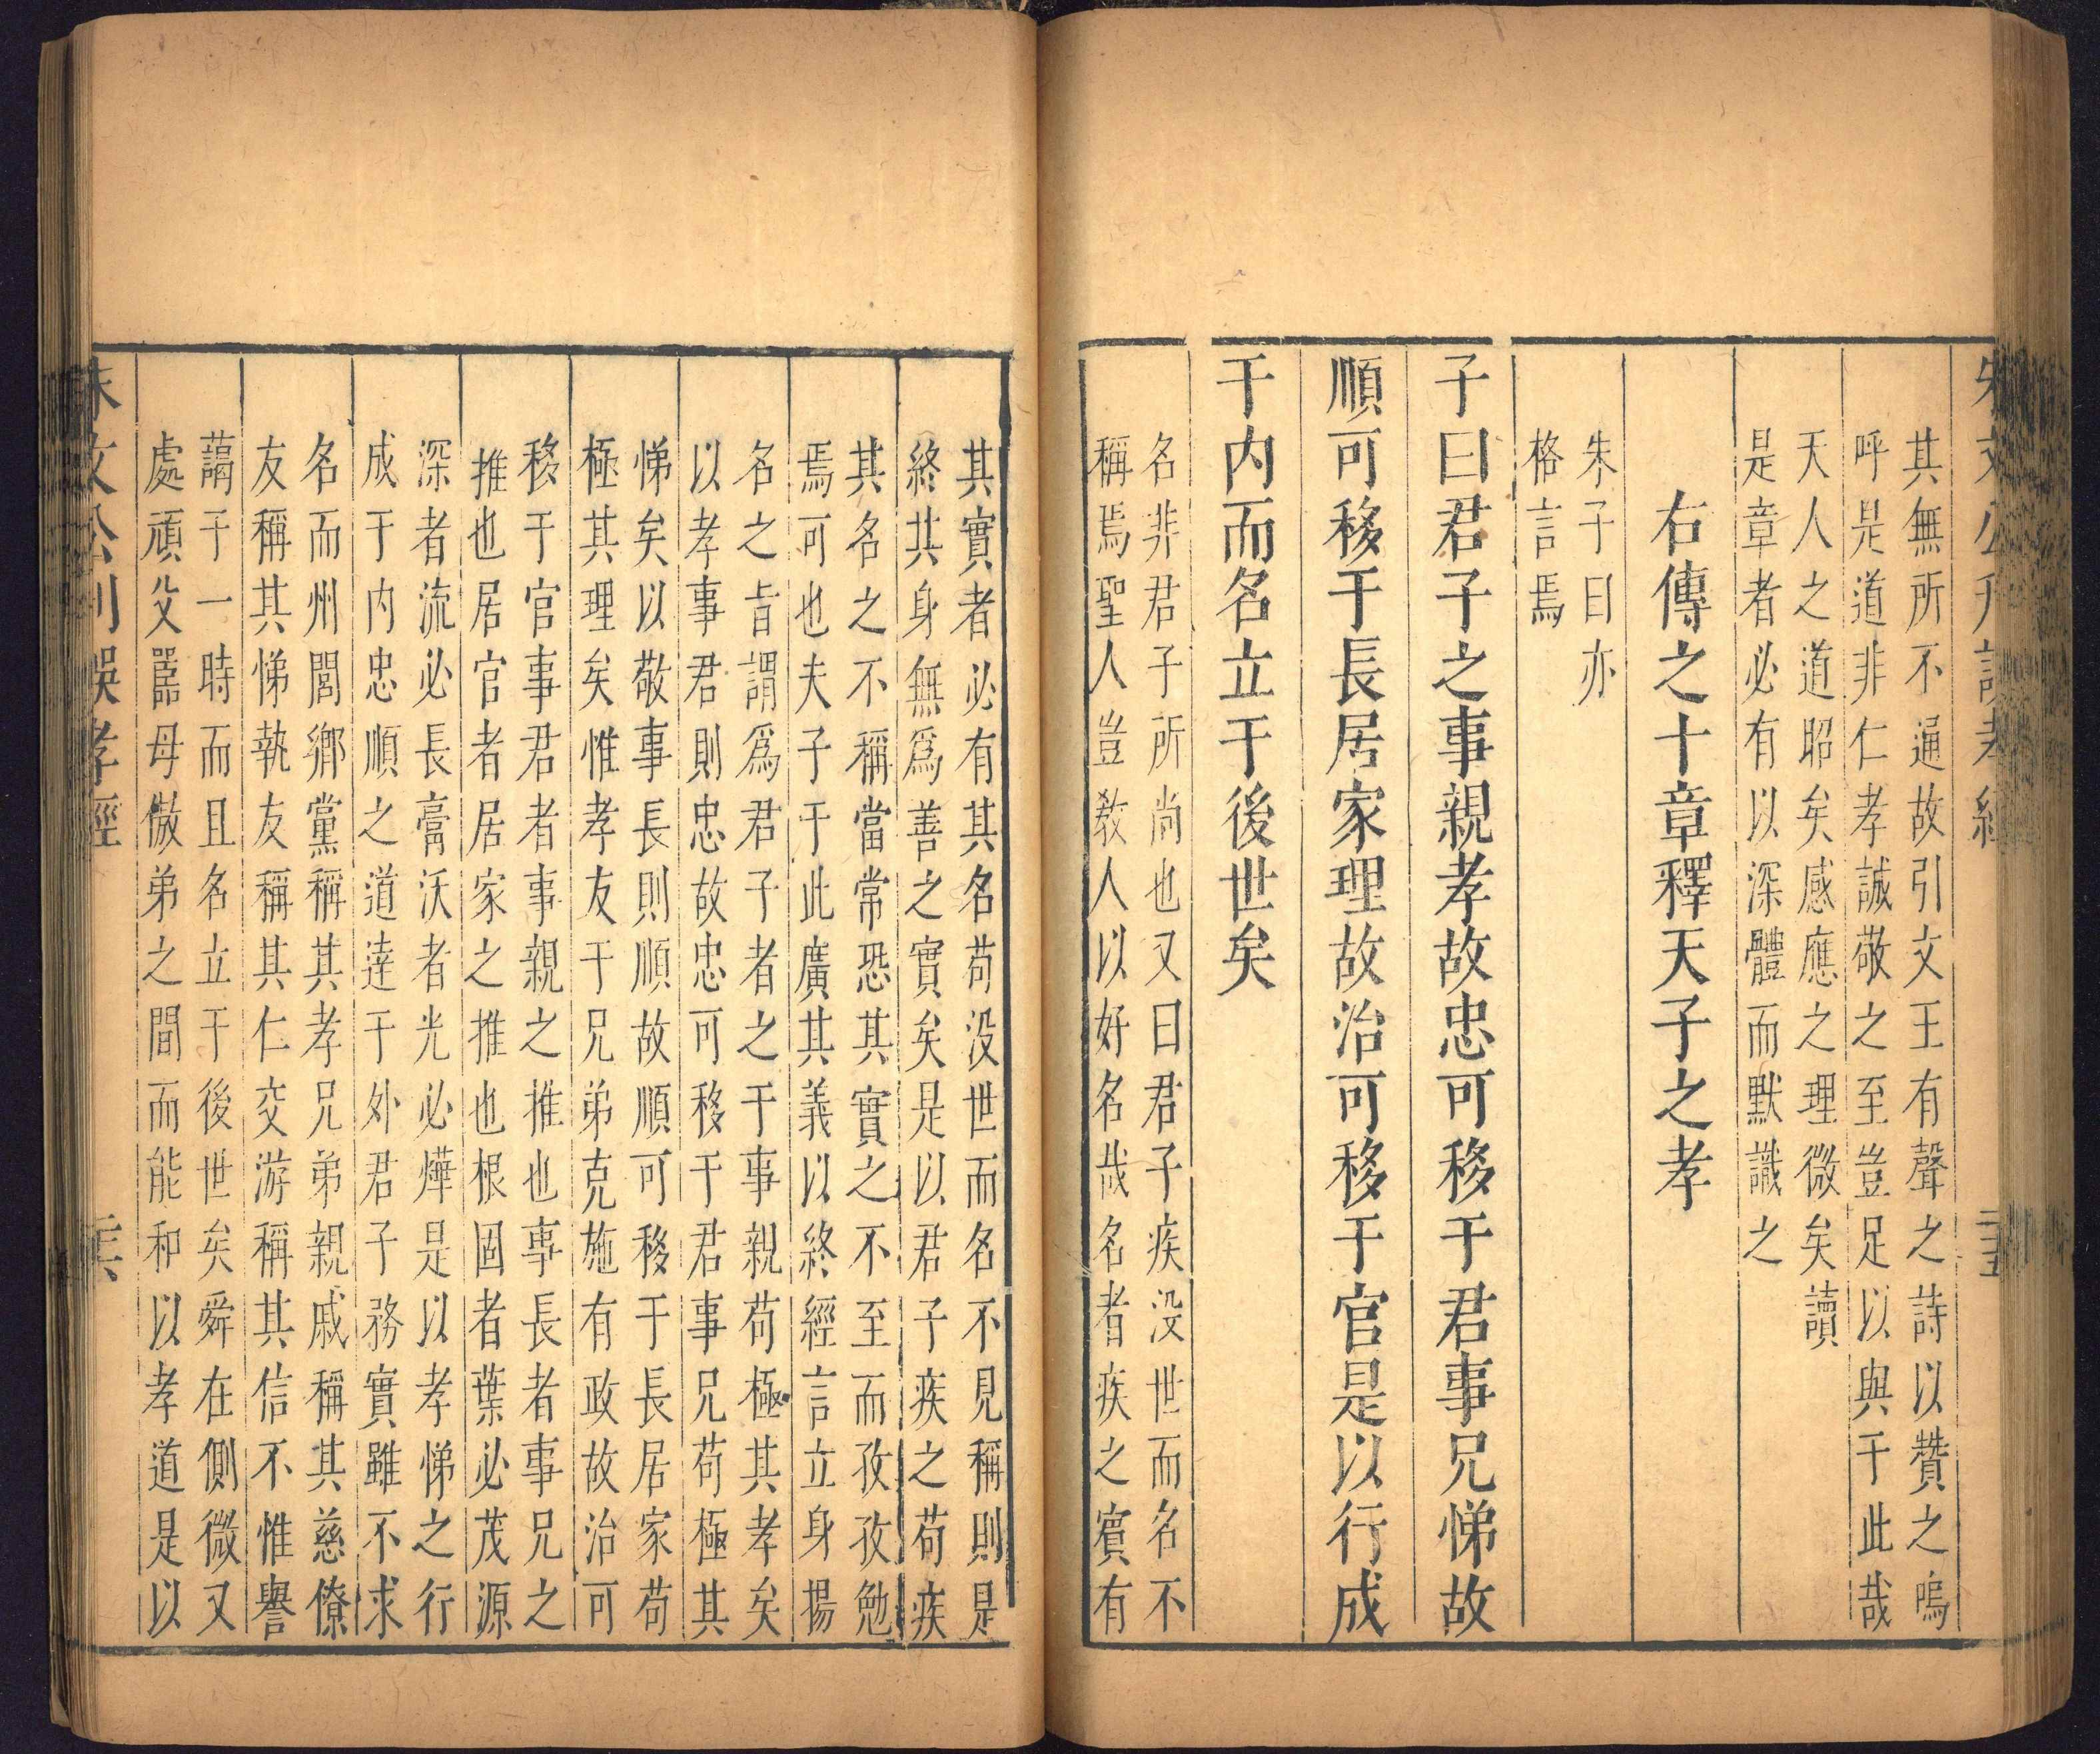 其無所不通故引文王有聲之詩以贊之嗚
呼是道非仁孝誠敬之至豈足以與于此哉
天人之道昭矣感應之理微矣讀
是章者必有以深體而默識之
右傳之十章釋天子之孝
朱子曰亦
格言焉
子曰君子之事親孝故忠可移于君事兄悌故
順可移于長居家理故治可移于官是以行成
于内而名立于後世矣
名非君子所尚也又曰君子疾没世而名不
稱焉聖人豈教人以好名哉名者疾之實有
其實者必有其名苟没世而名不見稱則是
終其身無爲善之實矣是以君子疾之苟疾
其名之不稱當常恐其實之不至而孜孜勉
焉可也夫子于此廣其義以終經言立身揚
名之旨謂爲君子者之于事親苟極其孝矣
以孝事君則忠故忠可移于君事兄苟極其
悌矣以敬事長則順故順可移于長居家苟
極其理矣惟孝友于兄弟克施有政故治可
移于官事君者事親之推也事長者事兄之
推也居官者居家之推也根固者葉必茂源
深者流必長膏沃者光必燁是以孝悌之行
成于内忠順之道達于外君子務實雖不求
名而州閭鄉黨稱其孝兄弟親戚稱其慈僚
友稱其悌執友稱其仁交游稱其信不惟譽
藹于一時而且名立于後世矣舜在側微又
處頑父嚚母傲弟之間而能和以孝道是以
朱文公刊誤孝經
二十六